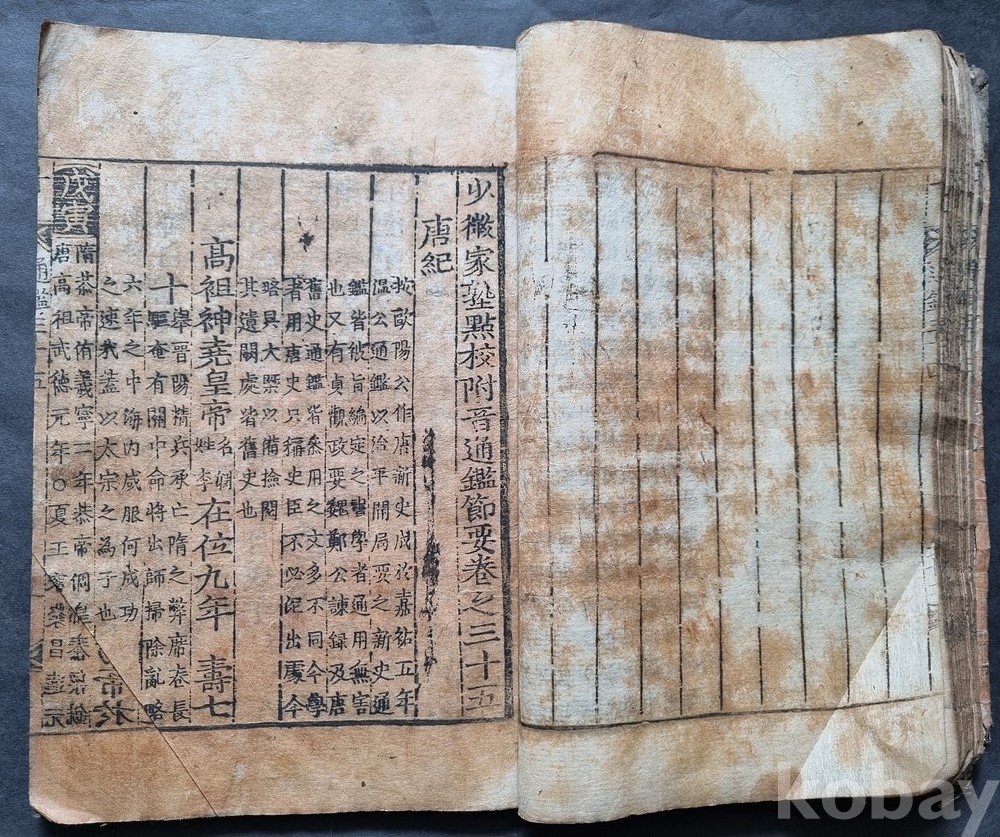 少微家塾點校附音通鑑節要卷之三十五
唐紀
按歐陽公作唐新史成於嘉祐五年
溫公通鑑以治平開局要之新史通
鑑皆被旨編定之書學者通用無害
也又有貞觀政要魏鄭公諫録及唐
舊史通鑑皆叅用之文多不同今學
者用唐史只稱史臣不必泥出處今
略具大槩以備撿閱
其遺闕處皆舊史也
高祖神堯皇帝名淵姓李在位九年 壽七
十
擧晋陽精兵承亡隋之弊席卷長
驅奄有關中命將出師掃除亂略
六年之中海內咸服何成功
之速哉盖以太宗之為子也
戊寅
隋恭帝侑義寧二年恭帝侗皇泰
唐高祖武德元年○夏王竇建
帝於
通鑑三十五
Kobay